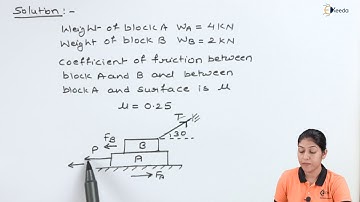 Solution:-
Ekeeda
Weight of block A WA = 4KN
Weight of block B WB = 2KN
Coefficient of friction between
block A and B and between
block A and surface is μ
μ = 0.25
T
FB
30
P
B
A
FA